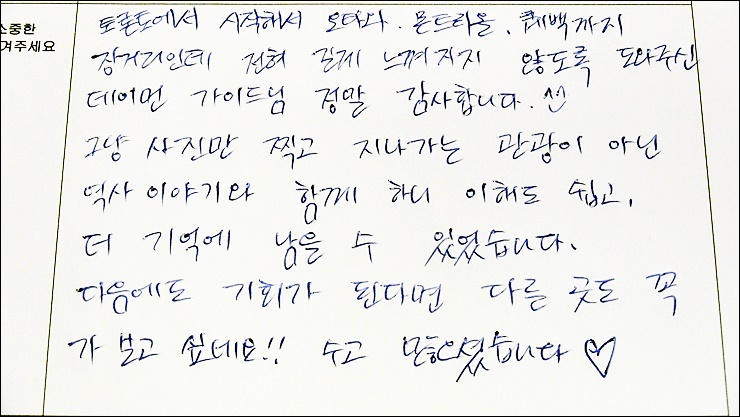 소중한
겨주세요
토론토에서 시작해서 오타와. 몬트리올. 퀘벡까지
장거리인데 전혀 길게 느껴지지 않도록 도와주신
데이먼 가이드님 정말 감사합니다. ^^
그냥 사진만 찍고 지나가는 관광이 아닌
역사 이야기와 함께 하니 이해도 쉽고,
더 기억에 남을 수 있었습니다.
다음에도 기회가 된다면 다른 곳도 꼭
가 보고 싶네요!! 수고 많으셨습니다 ♡